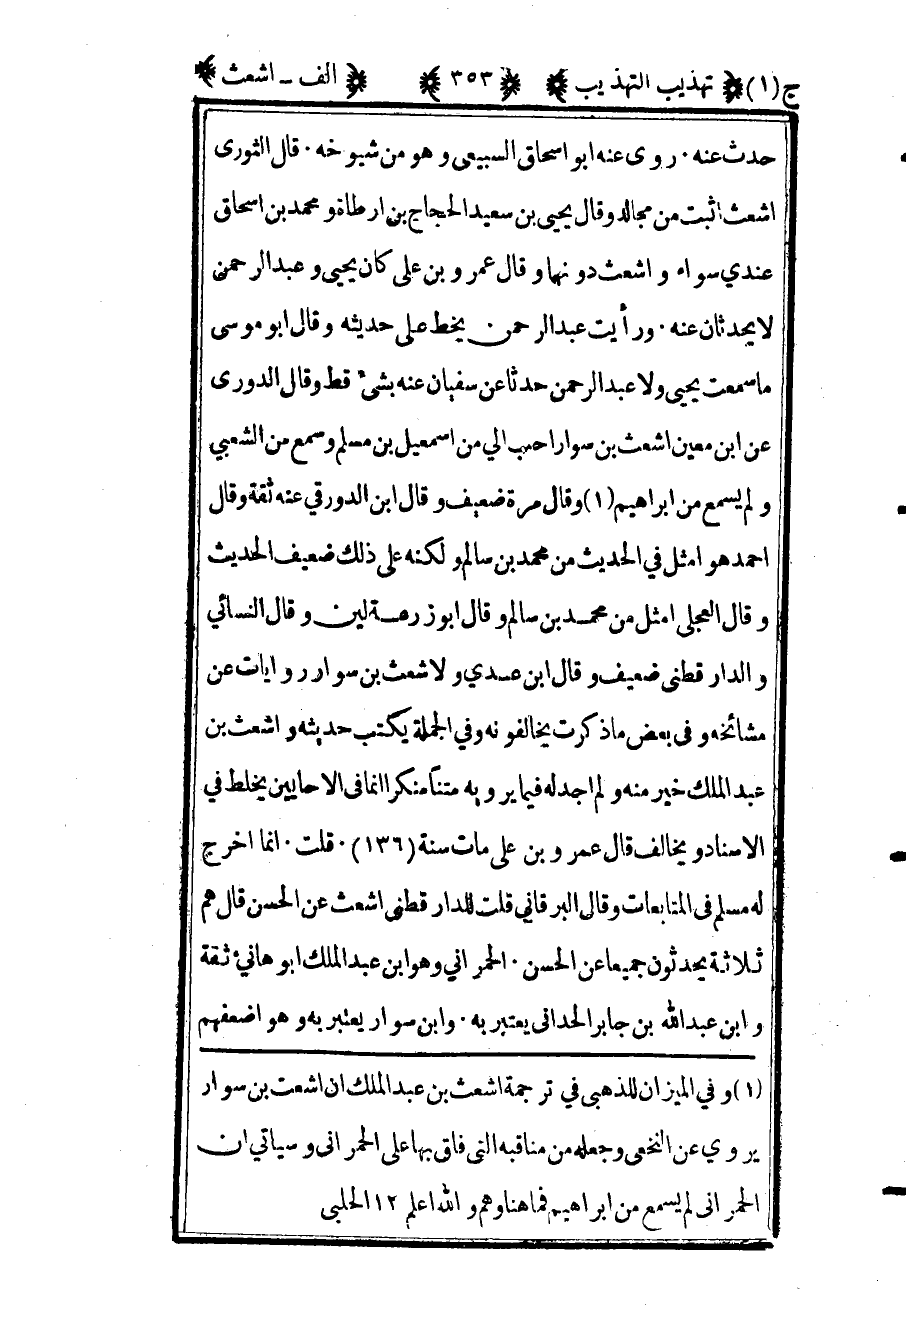 ج (١) تهذيب التهذيب ٣٥٣ الف ـ اشعث
حدث عنه · روى عنه ابو اسحاق السبيعى و هو من شيوخه · قال الثورى
اشعث اثبت من مجالد و قال يحيى بن سعيد الحجاج بن ارطاة و محمد بن اسحاق
عندي سواء و اشعث دونهما و قال عمرو بن على كان يحيى و عبد الرحمن
لا يحدثان عنه · ورأيت عبد الرحمن يخط على حديثه و قال ابو موسى
ما سمعت يحيى ولا عبد الرحمن حدثا عن سفيان عنه بشئ قط و قال الدورى
عن ابن معين اشعث بن سوار احب الي من اسمعيل بن مسلم و سمع من الشعبي
و لم يسمع من ابراهيم (١) و قال مرة ضعيف و قال ابن الدورقي عنه ثقة و قال
احمد هو امثل في الحديث من محمد بن سالم و لكنه على ذلك ضعيف الحديث
و قال العجلى امثل من محمد بن سالم و قال ابو زرعة لين و قال النسائي
و الدارقطنى ضعيف و قال ابن عدي و لاشعث بن سوار روايات عن
مشائخه و فى بعض ما ذكرت يخالفونه وفي الجملة يكتب حديثه و اشعث بن
عبد الملك خير منه و لم اجد له فيما يرويه متنا منكرا انما فى الاحايين يخلط في
الاسناد و يخالف قال عمرو بن على مات سنة (١٣٦) · قلت · انما اخرج
له مسلم فى المتابعات و قال البرقاني قلت للدارقطنى اشعث عن الحسن قال هم
ثلاثة يحدثون جميعا عن الحسن · الحمراني وهو ابن عبد الملك ابو هانئ ثقة
و ابن عبد الله بن جابر الحدانى يعتبر به · وابن سوار يعتبر به و هو اضعفهم
(١) و في الميزان للذهبى في ترجمة اشعث بن عبد الملك ان اشعث بن سوار
يروي عن النخعى و جعله من مناقبه التى فاق بها على الحمرانى و سياتي ان
الحمرانى لم يسمع من ابراهيم فما هنا وهم و الله اعلم ١٢ الحلبى